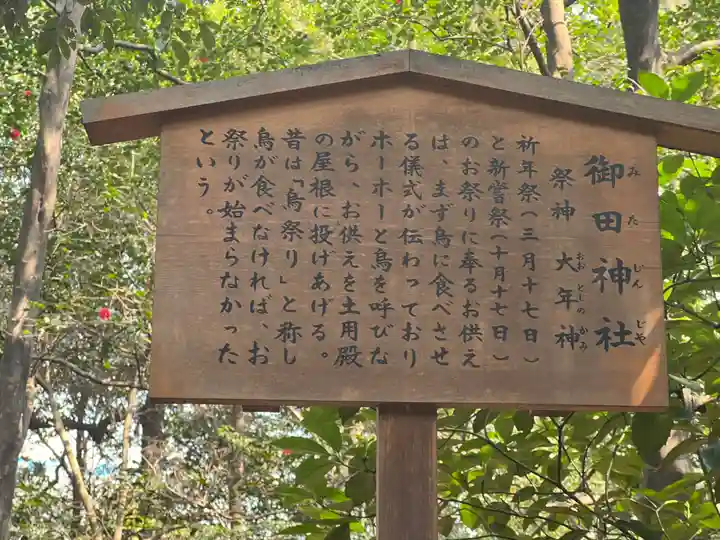 御田神社
みたじんじや
祭神 大年神
おおとしのかみ
祈年祭(三月十七日)
と新嘗祭(十月十七日)
のお祭りに奉るお供え
は、まず烏に食べさせ
る儀式が伝わっており
ホーホーと烏を呼びな
がら、お供えを土用殿
の屋根に投げあげる。
昔は「烏祭り」と称し
烏が食べなければ、お
祭りが始まらなかった
という。